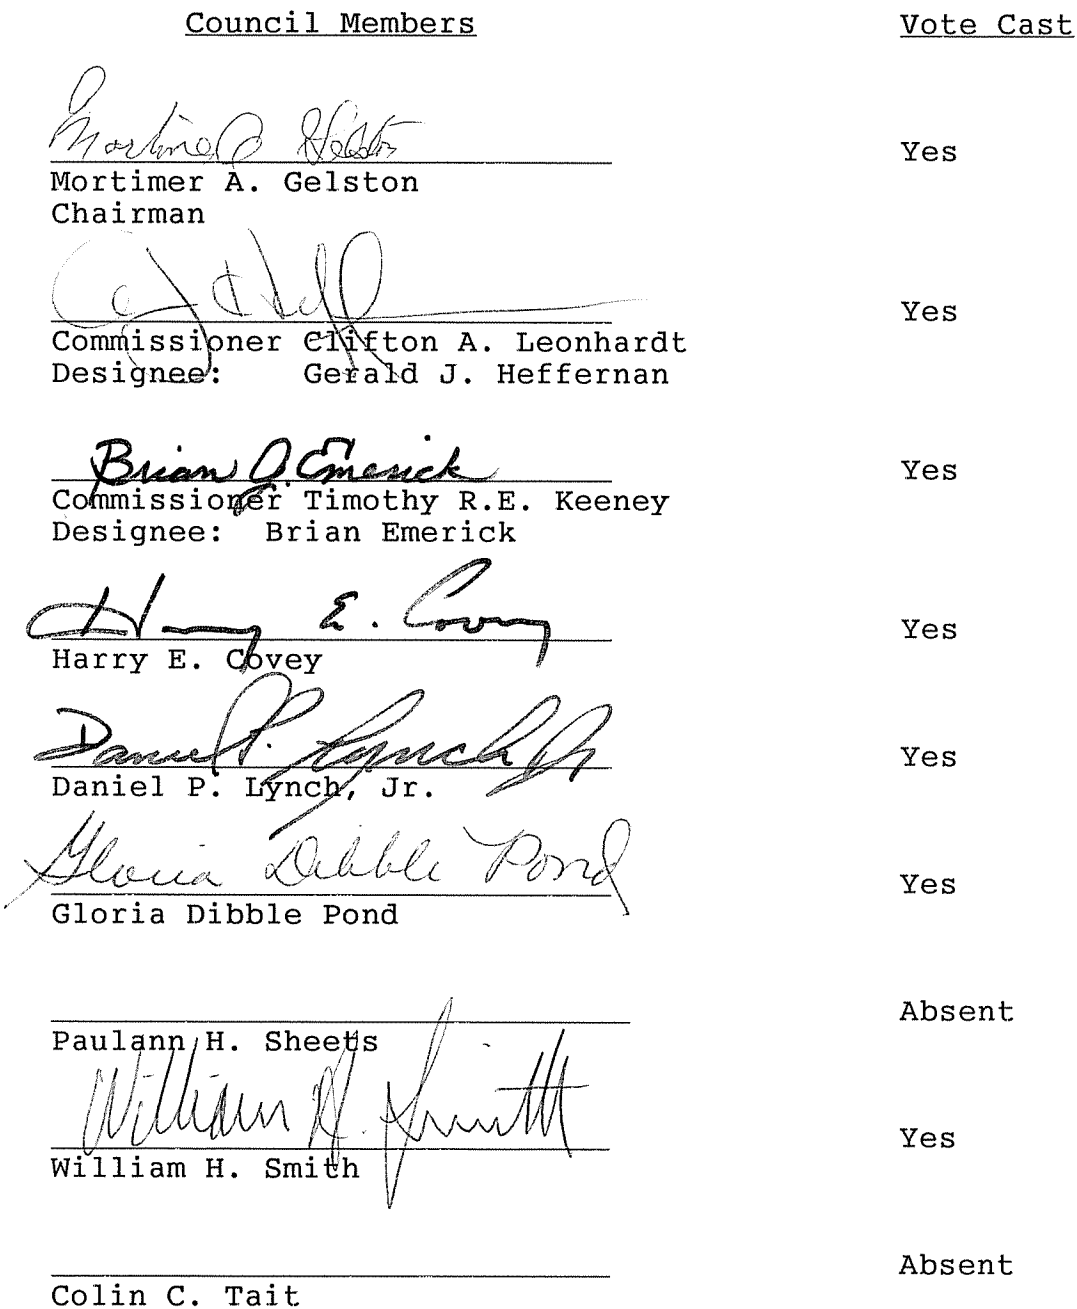 Council Members Vote Cast
Mortimer A. Gelston Yes
Mortimer A. Gelston
Chairman
Yes
Commissioner Clifton A. Leonhardt
Designee: Gerald J. Heffernan
Brian J. Emerick Yes
Commissioner Timothy R.E. Keeney
Designee: Brian Emerick
Harry E. Covey Yes
Harry E. Covey
Daniel P. Lynch Jr Yes
Daniel P. Lynch, Jr.
Gloria Dibble Pond Yes
Gloria Dibble Pond
Absent
Paulann H. Sheets
William H. Smith Yes
William H. Smith
Absent
Colin C. Tait